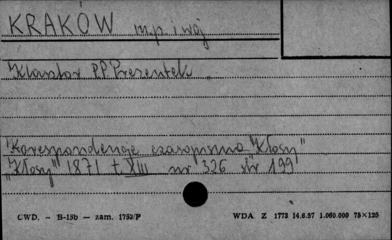 KRAKÓW m.p. i woj
Klasztor PP Prezentek
"Korespondencje czasopisma "Kłosy"
"Kłosy" 1871 t. XIII nr 326 str 199
CWD. – B-15b – zam. 1752/P WDA. Z 1773 14.6.57 1.060.000 75×125